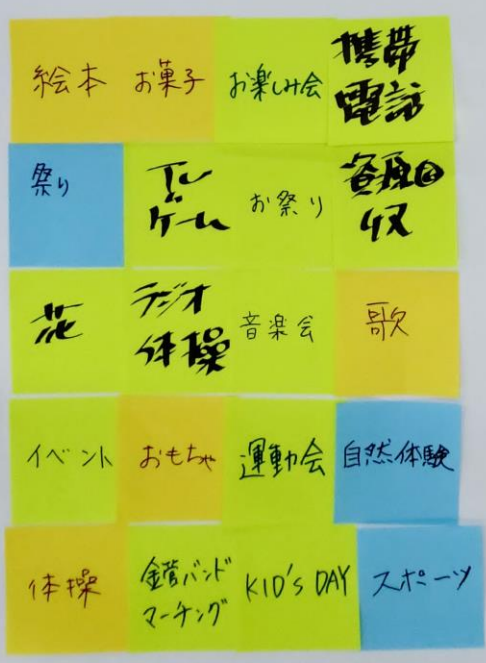 絵本
お菓子
お楽しみ会
携帯
電話
祭り
TV
ゲーム
お祭り
資源回
収
花
ラジオ
体操
音楽会
歌
イベント
おもちゃ
運動会
自然体験
体操
金管バンド
マーチング
KID's DAY
スポーツ